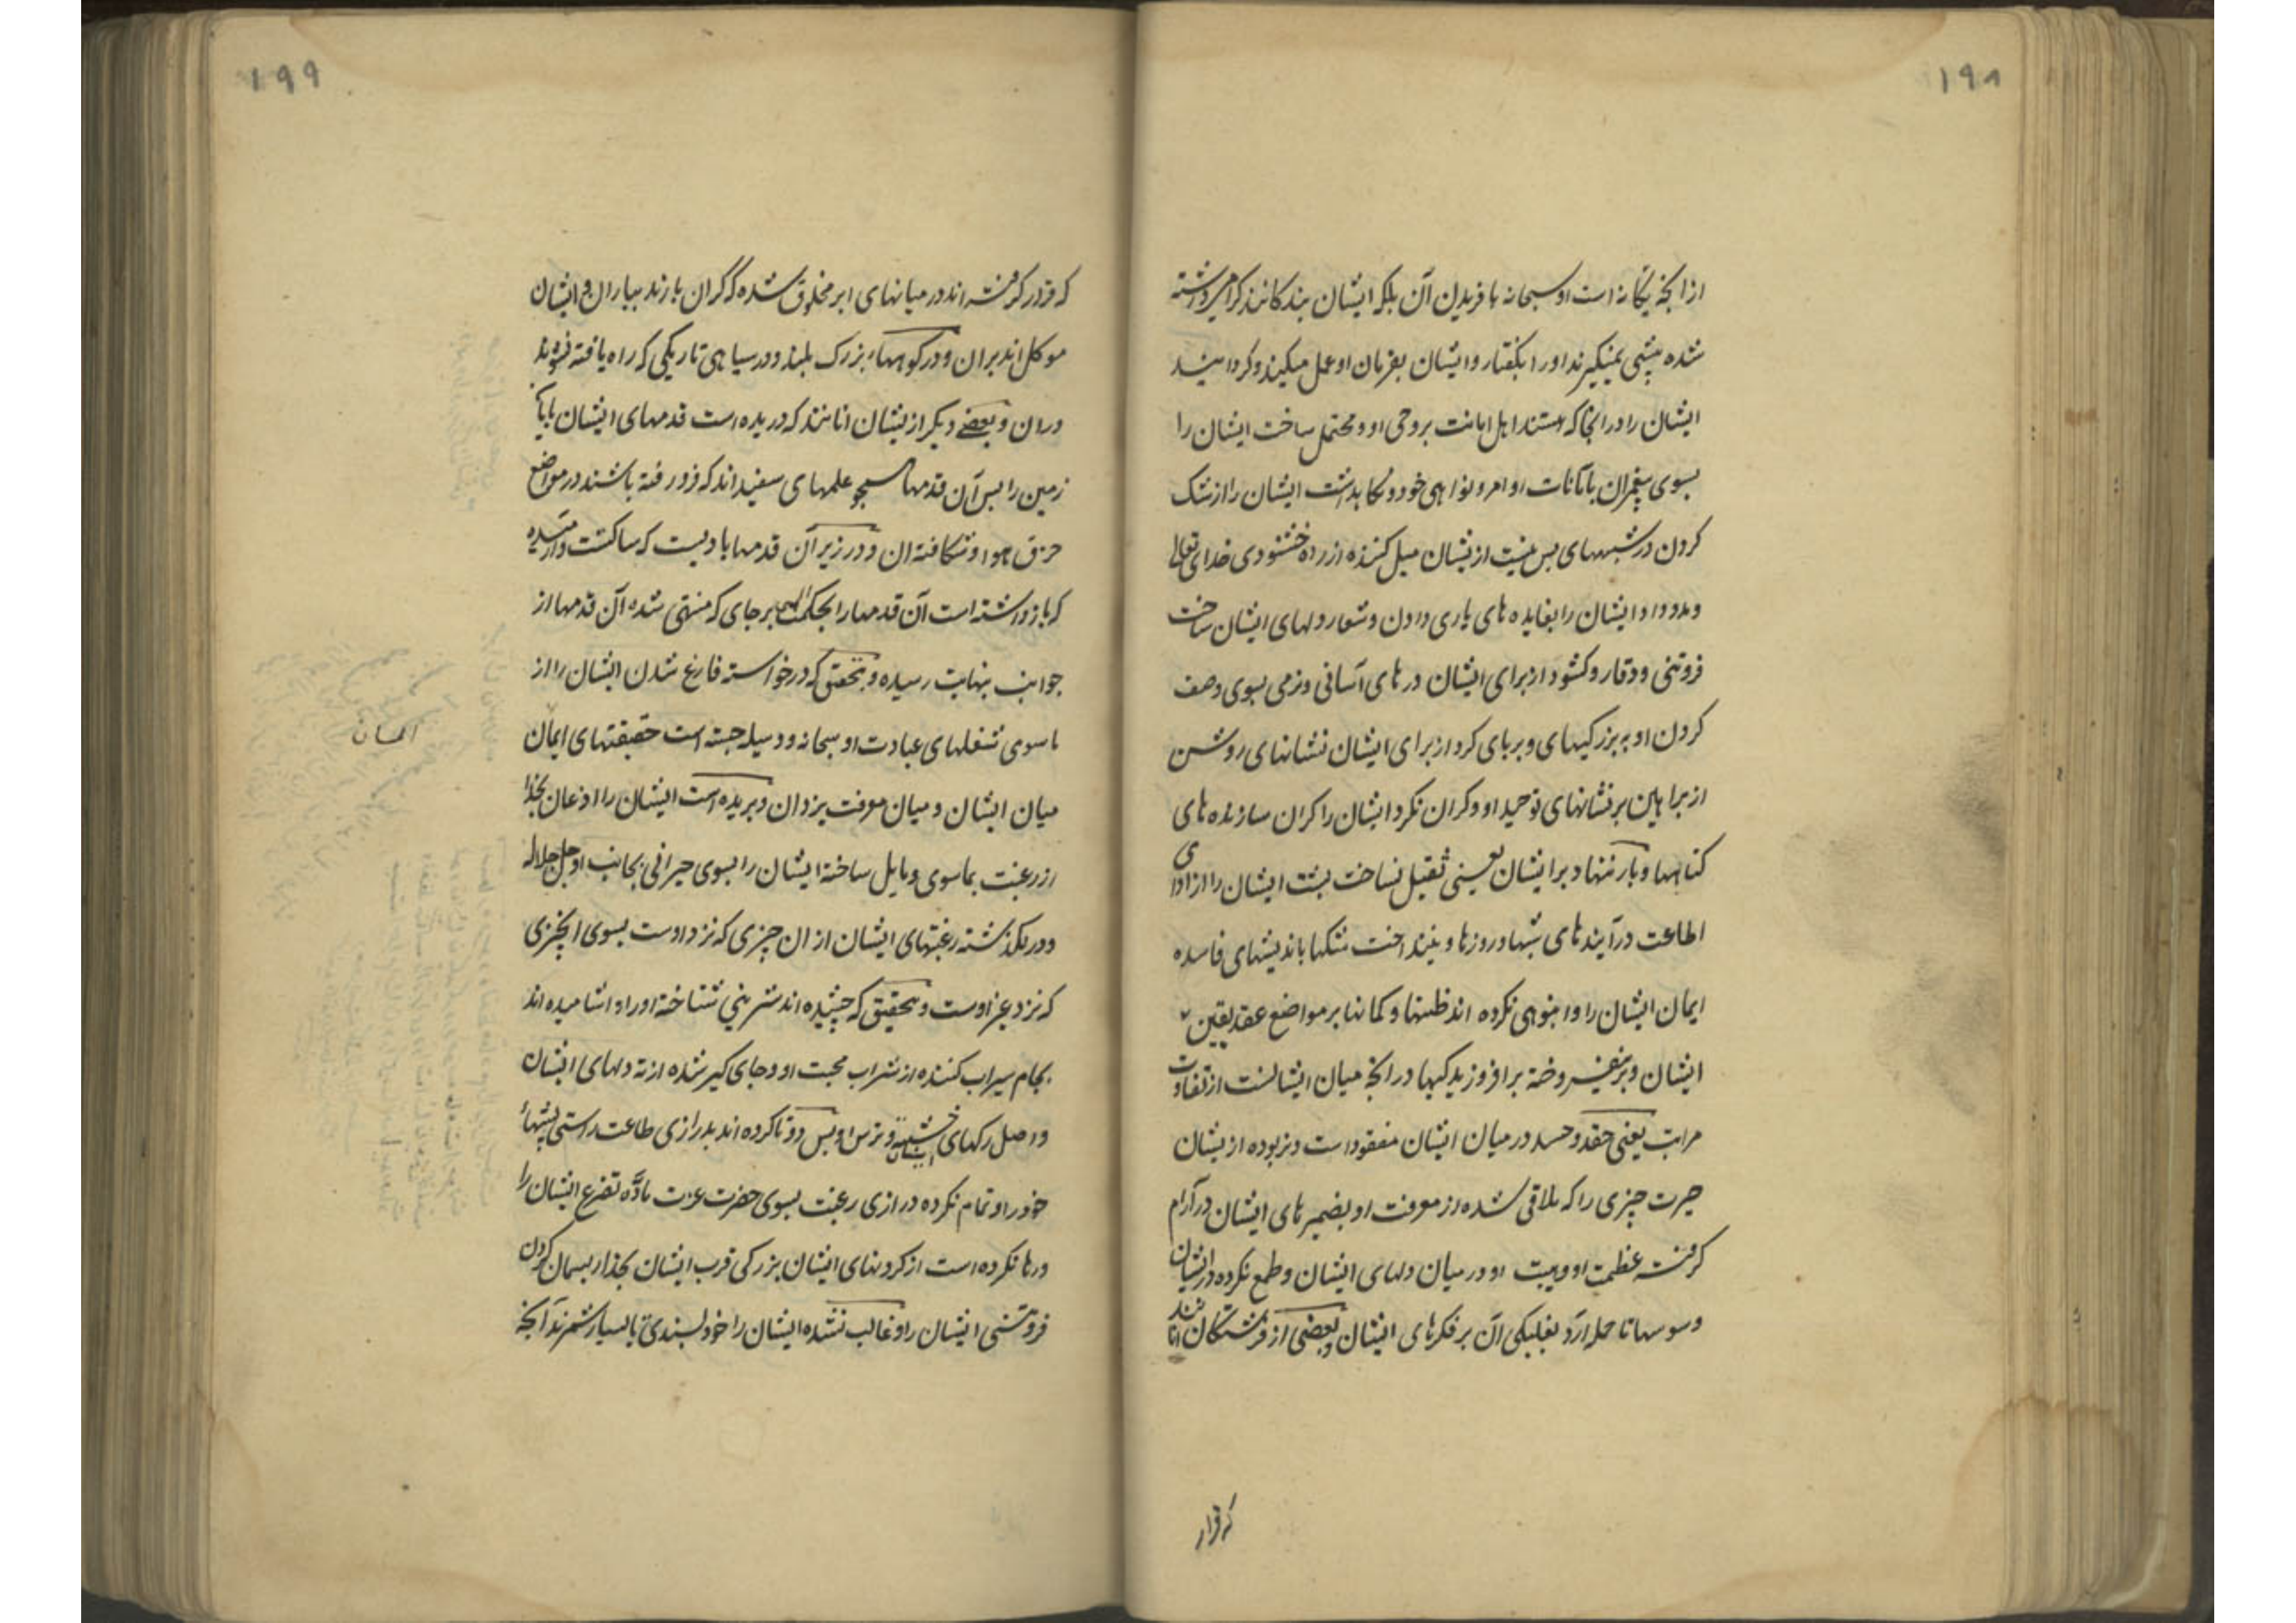 ۱۹۸
ازانچه یکانه است او سبحانه بافریدن آن بلکه ایشان بندکانند کرامی داشته
شده پیشی نمیکیرند او را بکفتار و ایشان بفرمان او عمل میکنند و کردانید
ایشان را در انجا که هستند اهل امانت بر وحی او و محتمل ساخت ایشان را
بسوی پیغمبران بامانات اوامر و نواهی خود و نکاهداشت ایشان را از شک
کردن در شبههای پس نیست ازیشان میل کننده از راه خشنودی خدای تعالی
و مدد داد ایشان را بفایده های یاری دادن و شعار دلهای ایشان ساخت
فروتنی و وقار و کشود از برای ایشان درهای آسانی و نرمی بسوی وصف
کردن او به بزرکیهای و برپای کرد از برای ایشان نشانهای روشن
از براهین بر نشانهای توحید او و کران نکرد ایشان را کران سازنده های
کناهها و بار ننهاد بر ایشان یعنی ثقیل نساخت پشت ایشان را از ادای
اطاعت درآینده های شبها و روزها و نینداخت شکها باندیشهای فاسده
ایمان ایشان را و انبوهی نکرده اند ظنها و کمانها بر مواضع عقد یقین
ایشان و بر نیفروخته برافروزیدکیها در انچه میان ایشانست از تفاوت
مراتب یعنی حقد و حسد در میان ایشان مفقود است و نربوده ازیشان
حیرت چیزی را که ملاقی شده از معرفت او بضمیرهای ایشان و آرام
کرفته عظمت او و هیبت او در میان دلهای ایشان و طمع نکرده در ایشان
وسوسها تا حمله آرد بغلبکی آن بر فکرهای ایشان و بعضی از فرشتکان آنانند
که قرار
۱۹۹
که قرار کرفته اند در میانهای ابر مخلوق شده که کران بارند بباران و ایشان
موکل اند بران و در کوههاء بزرک بلند و در سیاهی تاریکی که راه یافته نشوند
دران و بعضی دیکر ازیشان آنانند که دریده است قدمهای ایشان
زمین را پس آن قدمها همچو علمهای سفید اند که فرو رفته باشند در مواضع
خرق هوا و شکافته ان و در زیر آن قدمها بادیست که ساکنست
که بازداشته است آن قدمها را بحکمت الهی بر جای که منتهی شده آن قدمها از
جوانب بنهایت رسیده و بتحقیق که درخواسته فارغ شدن ایشان را از
ماسوی شغلهای عبادت او سبحانه و وسیله جسته است حقیقتهای ایمان
میان ایشان و میان معرفت یزدان و بریده است ایشان را اذعان بخدا
از رغبت بماسوی و مایل ساخته ایشان را بسوی حیرانی بجانب او جل جلاله
و در نکذشته رغبتهای ایشان از ان چیزی که نزد اوست بسوی انچیزی
که نزد غیر اوست و بتحقیق که چشیده اند شیرینی شناخته او را و اشامیده اند
بجام سیراب کننده از شراب محبت او و جای کیر شده از ته دلهای ایشان
و اصل رکهای ایشان خشیة و ترس او پس دو تا کرده اند بدرازی طاعت راستی پشتهاء
خود را و تمام نکرده درازی رغبت بسوی حضرت عزت مادّه تضرع ایشان را
و رها نکرده است از کردنهای ایشان بزرکی قرب ایشان بخدا ریسمان کردن
فروتنی ایشان را و غالب نشده ایشان را خودپسندی تا بسیار شمرند آنچه